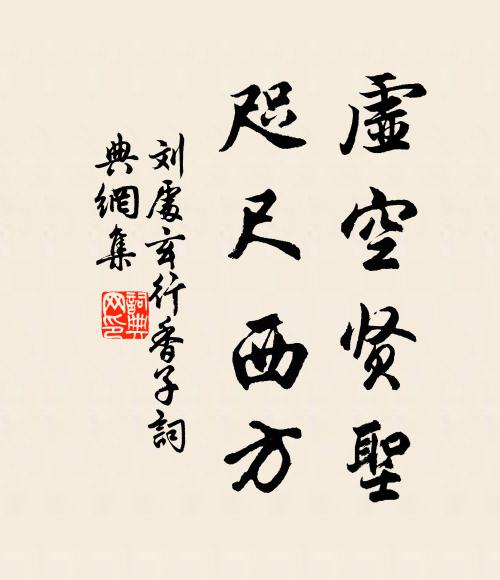 虛空贤聖
咫尺西方
刘處玄行香子詞
典網集
詞典网印